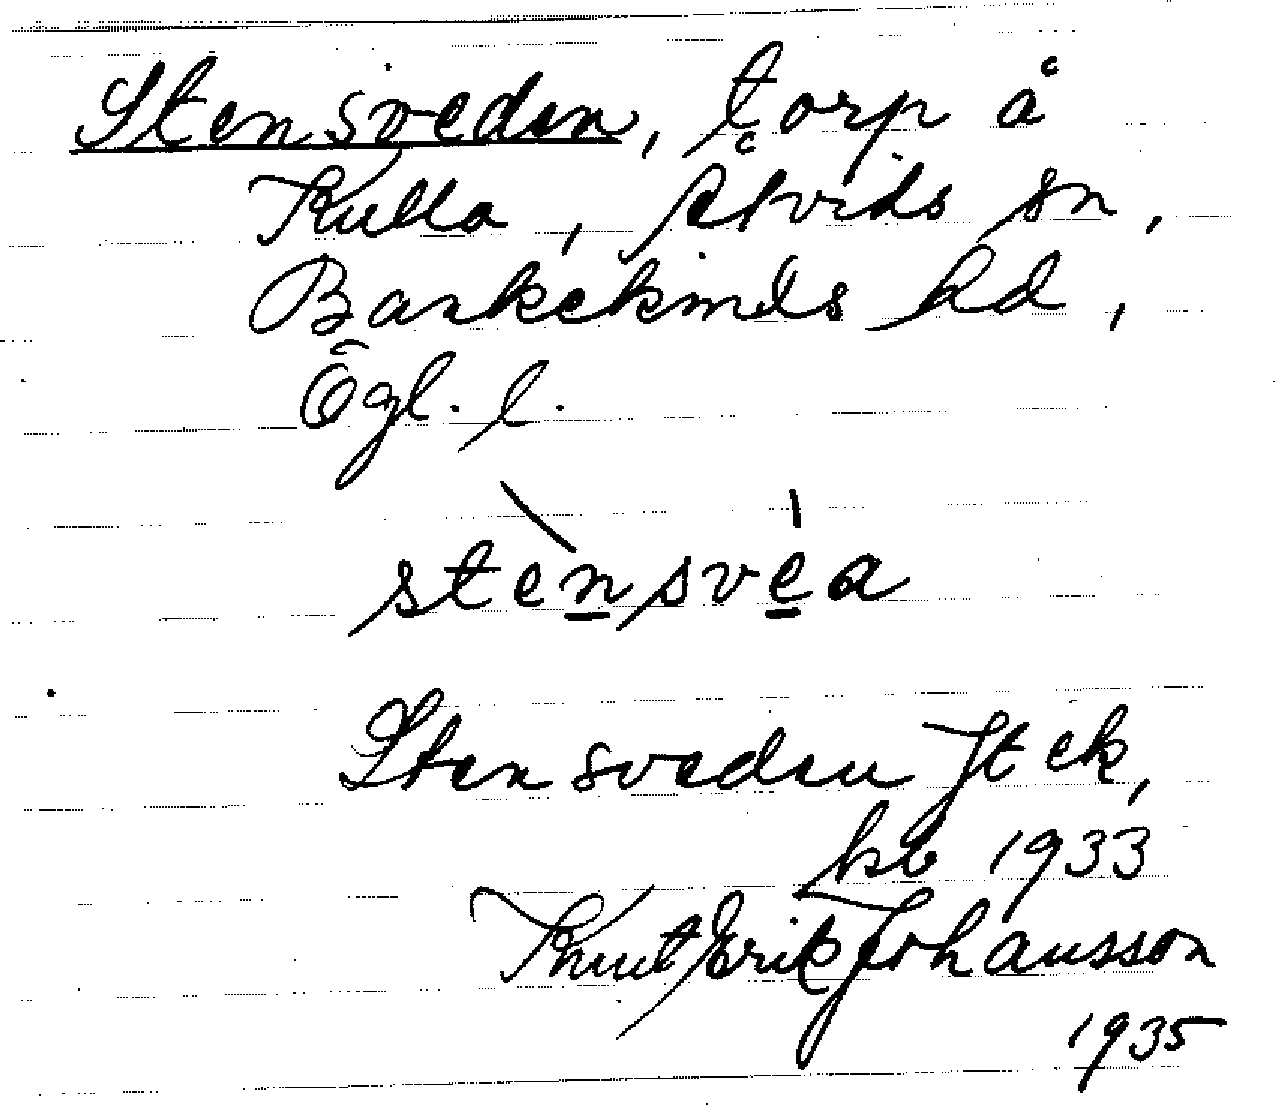 Stensveden, torp å
Kulla, Åtvids sn,
Bankekinds hd,
Ögl. l.
stènsvéa
Stensveden Jt ek,
kb 1933
Knut Erik Johansson
1935